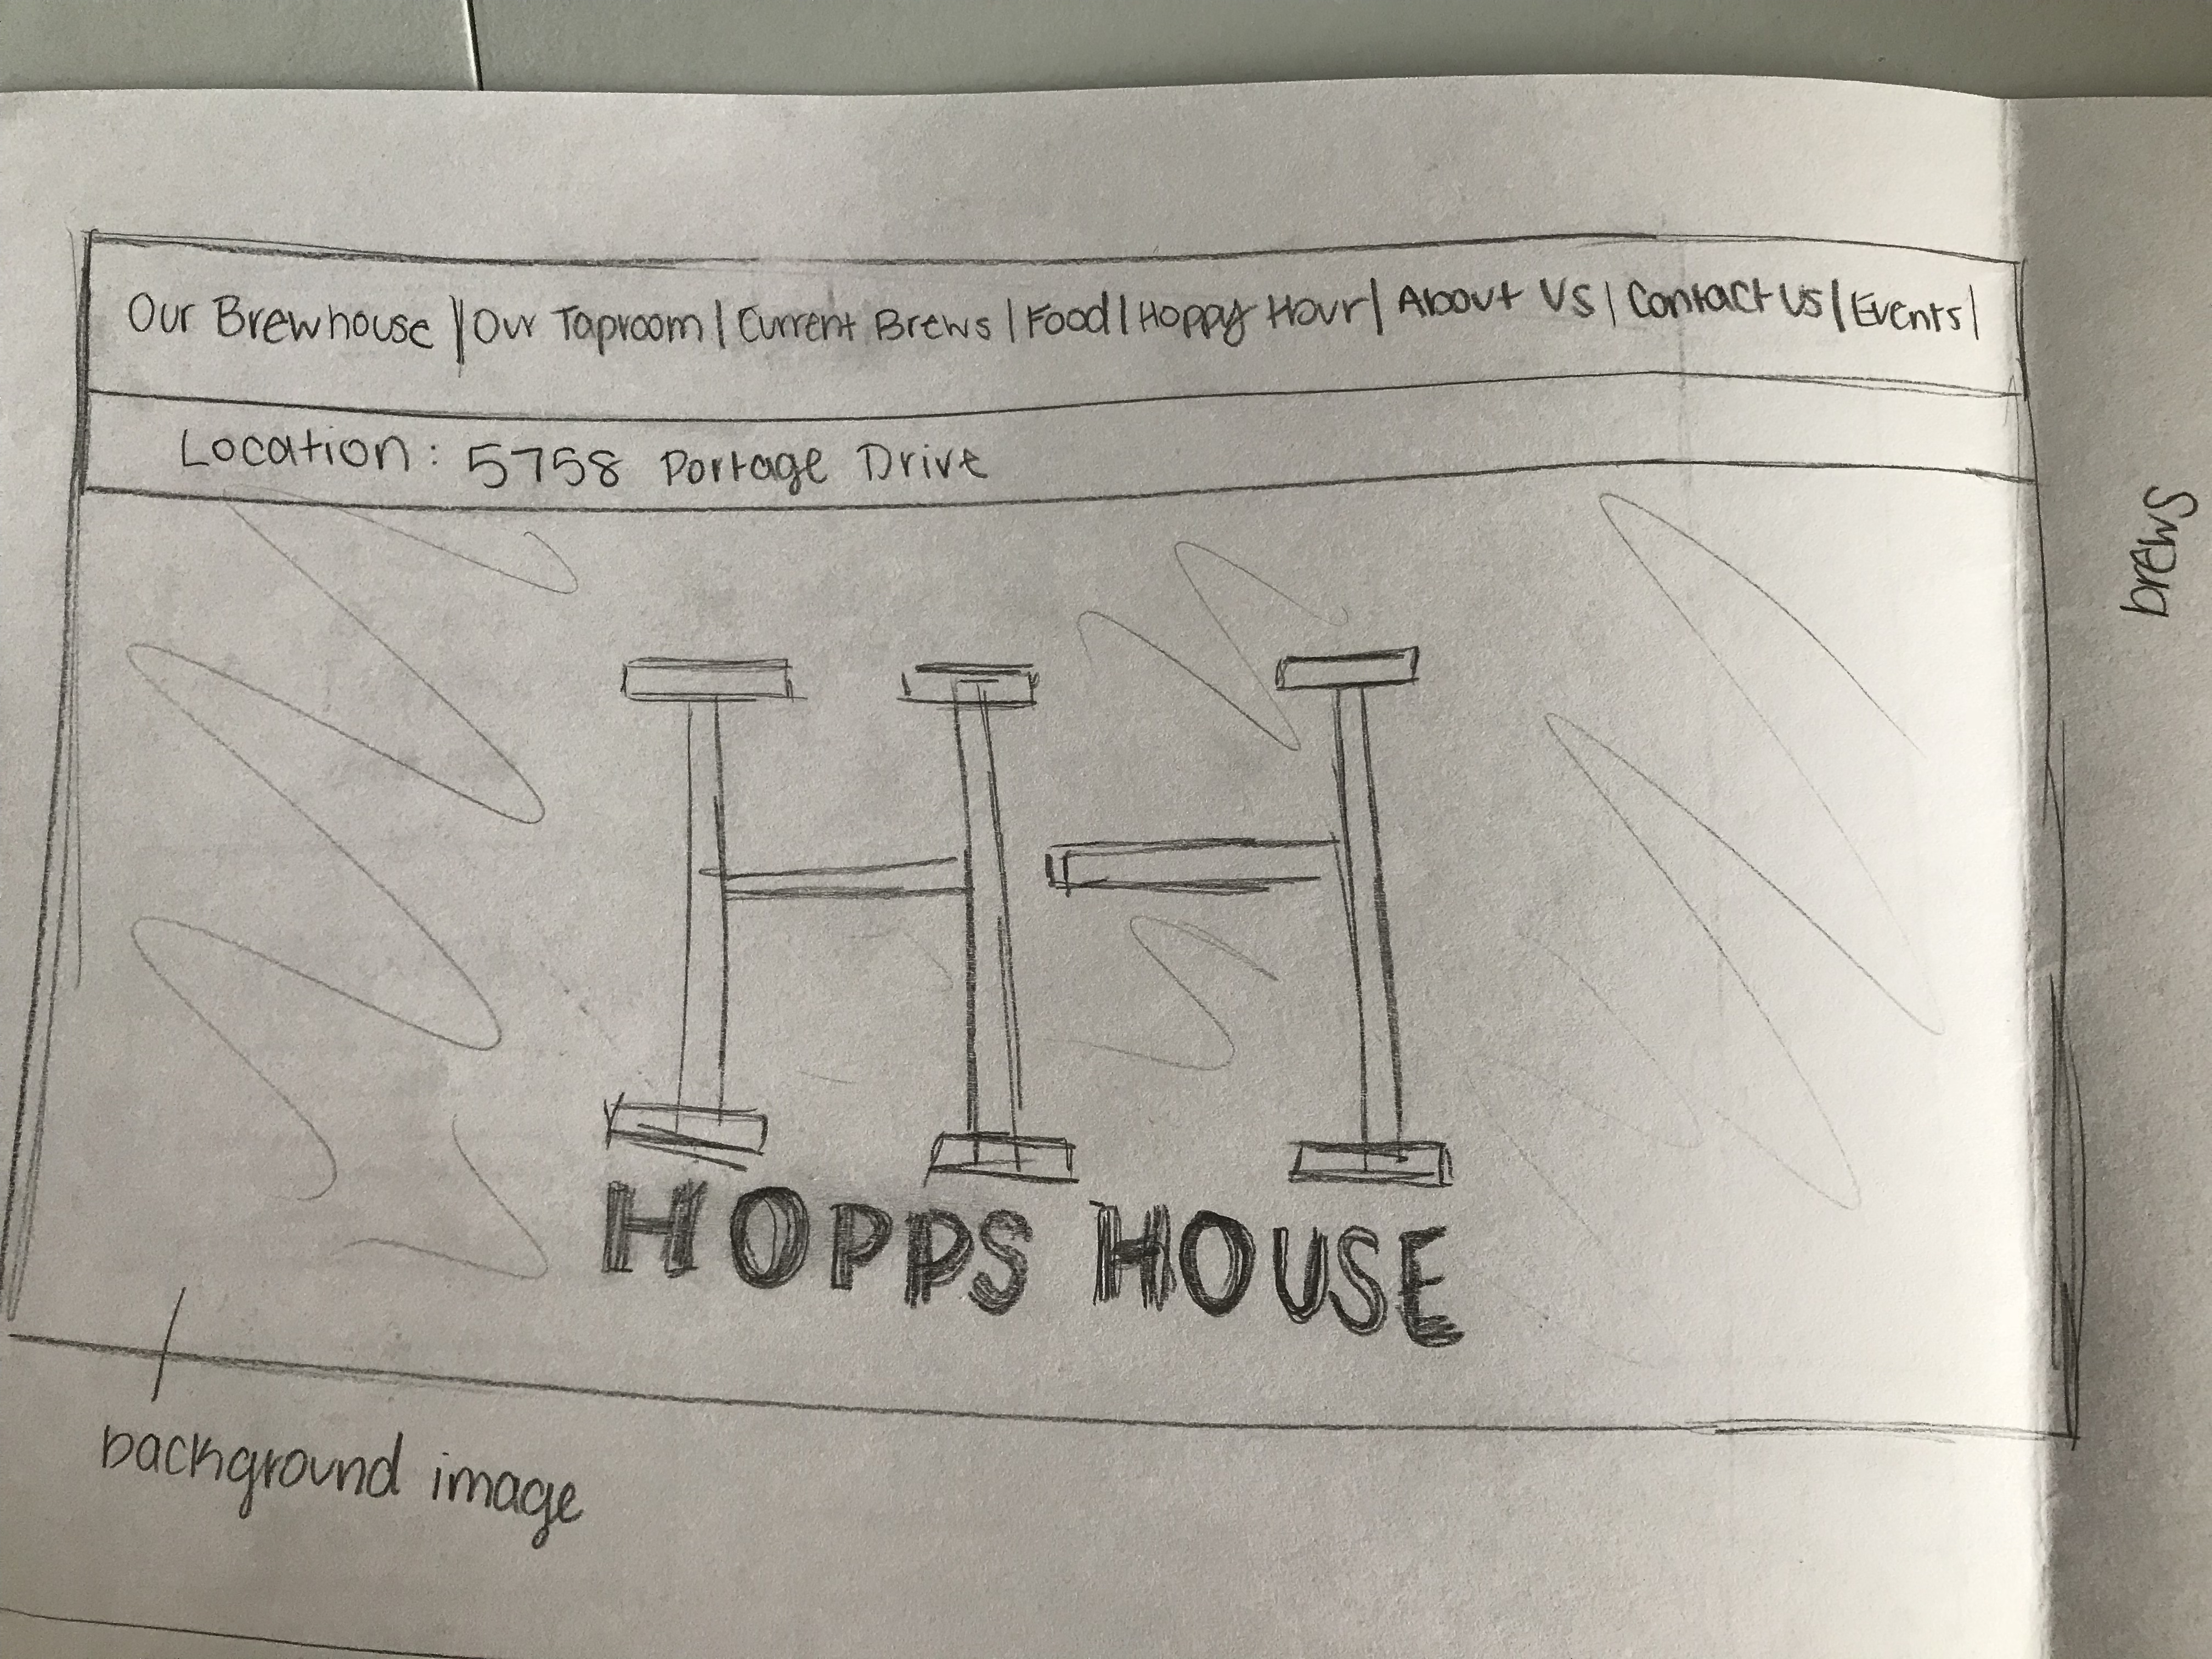 Our Brewhouse | Our Taproom | Current Brews | Food | Hoppy Hour | About Us | Contact Us | Events |
Location: 5758 Portage Drive
HH
HOPPS HOUSE
background image
brews